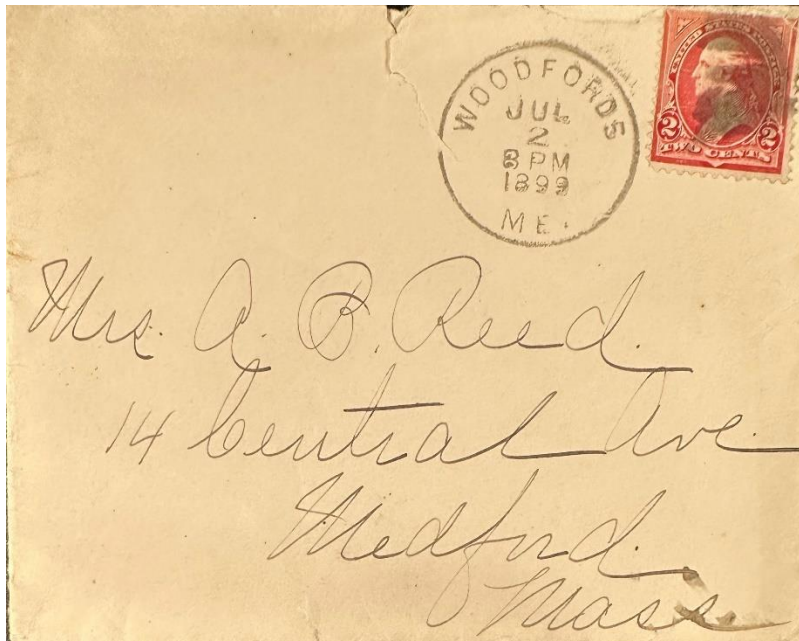 WOODFORDS
JUL
2
8 PM
1899
ME.
UNITED STATES POSTAGE
2 2
TWO CENTS
Mrs. A. B. Reed.
14 Central Ave.
Medford.
Mass